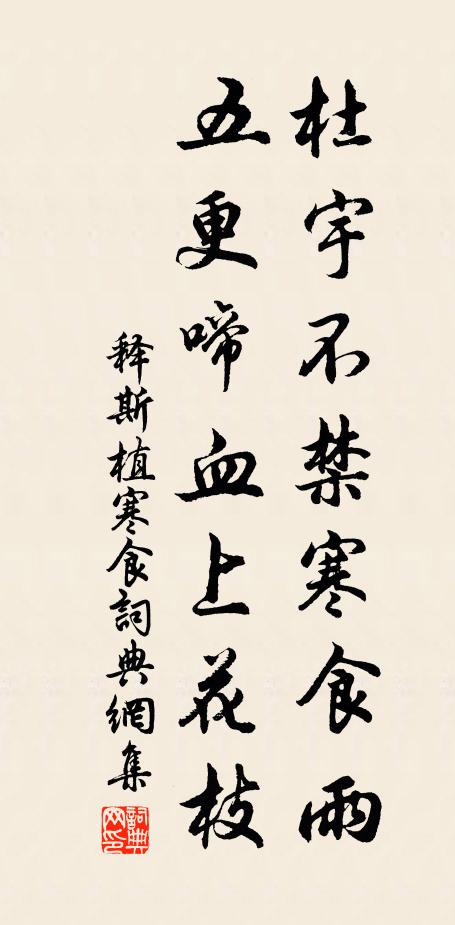 杜宇不禁寒食雨
五更啼血上花枝
释斯植寒食詞典網集
詞典网印